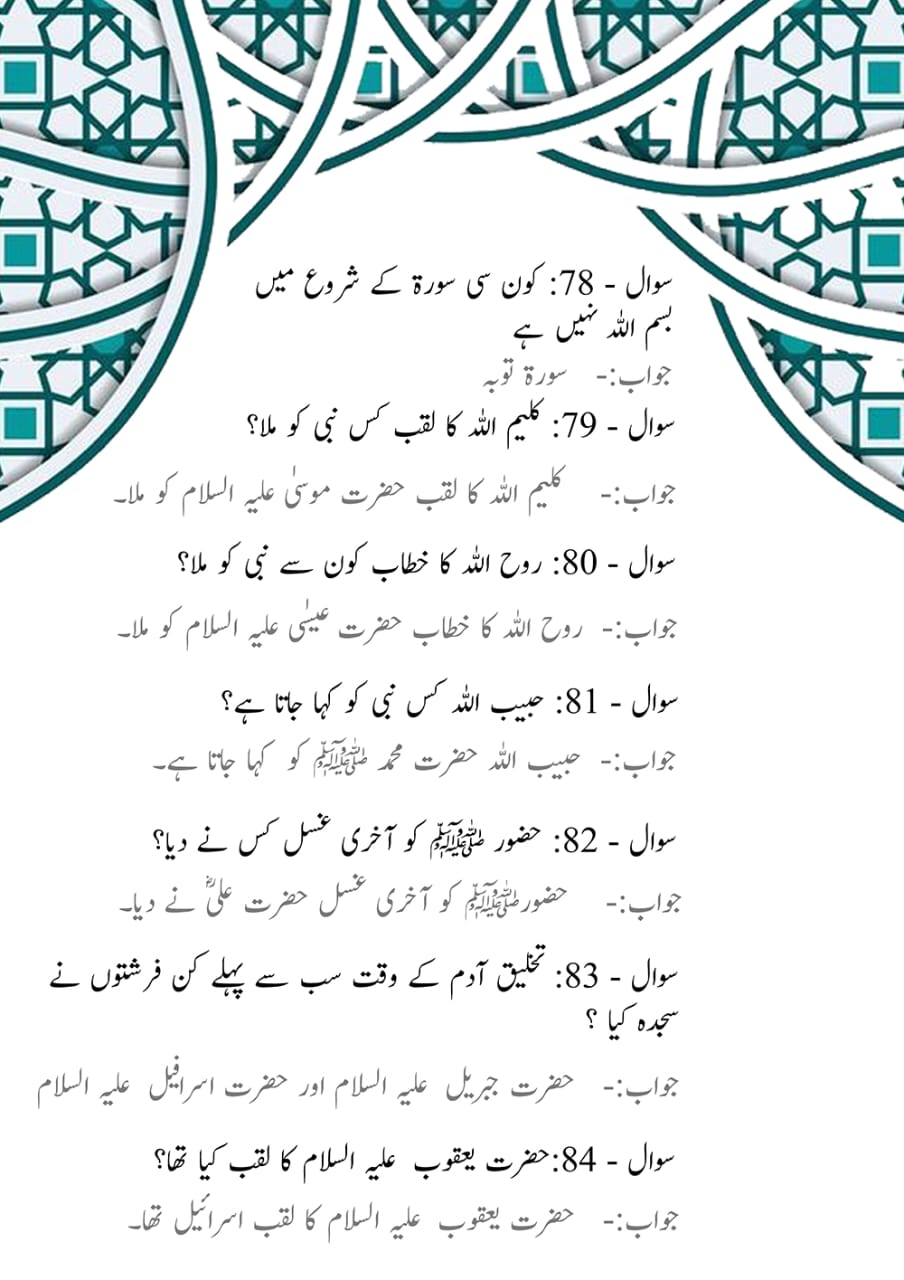 سوال - 78: کون سی سورۃ کے شروع میں
بسم اللہ نہیں ہے
جواب:- سورۃ توبہ
سوال - 79: کلیم اللہ کا لقب کس نبی کو ملا؟
جواب:- کلیم اللہ کا لقب حضرت موسیٰ علیہ السلام کو ملا۔
سوال - 80: روح اللہ کا خطاب کون سے نبی کو ملا؟
جواب:- روح اللہ کا خطاب حضرت عیسٰی علیہ السلام کو ملا۔
سوال - 81: حبیب اللہ کس نبی کو کہا جاتا ہے؟
جواب:- حبیب اللہ حضرت محمد ﷺ کو کہا جاتا ہے۔
سوال - 82: حضور ﷺ کو آخری غسل کس نے دیا؟
جواب:- حضورﷺ کو آخری غسل حضرت علیؓ نے دیا۔
سوال - 83: تخلیق آدم کے وقت سب سے پہلے کن فرشتوں نے
سجدہ کیا ؟
جواب:- حضرت جبریل علیہ السلام اور حضرت اسرافیل علیہ السلام
سوال - 84:حضرت یعقوب علیہ السلام کا لقب کیا تھا؟
جواب:- حضرت یعقوب علیہ السلام کا لقب اسرائیل تھا۔